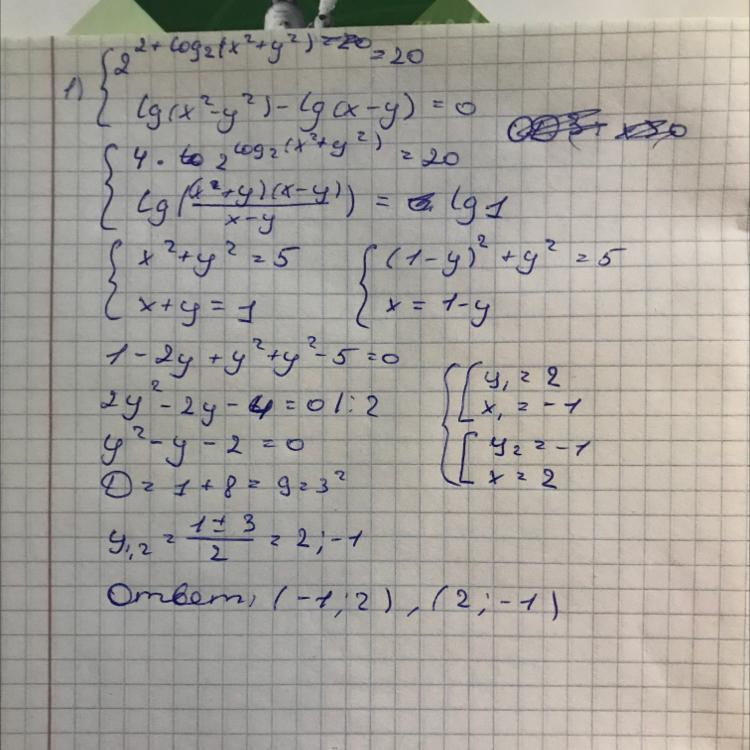 1) { 2^(2+log₂(x²+y²)) = 20
{ lg(x²-y²) - lg(x-y) = 0
{ 4 · 2^(log₂(x²+y²)) = 20
{ lg((x²+y)(x-y)/(x-y)) = lg 1
{ x²+y² = 5 { (1-y)²+y² = 5
{ x+y = 1 { x = 1-y
1-2y+y²+y²-5=0
2y²-2y-4=0 |:2
y²-y-2=0
D = 1+8=9=3²
y₁,₂ = (1±3)/2 = 2;-1
{ [ y₁ = 2
[ x₁ = -1
[ y₂ = -1
[ x = 2
Ответ, (-1;2), (2;-1)